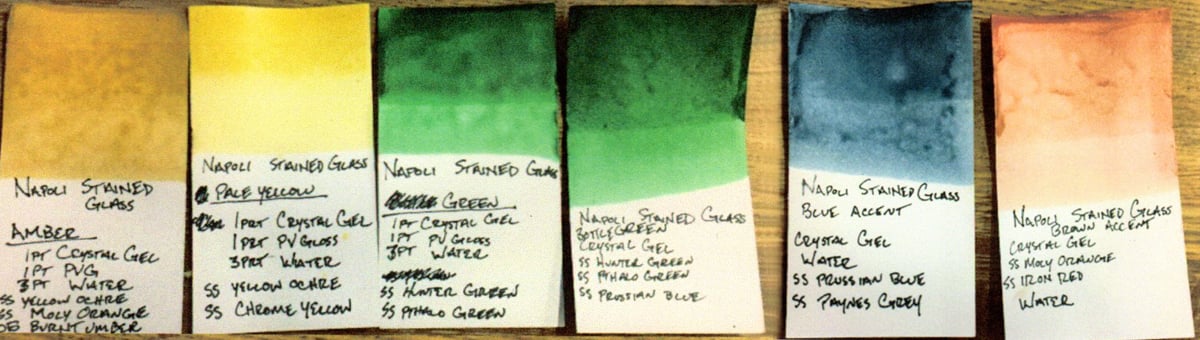 NAPOLI STAINED
GLASS
AMBER
1PT CRYSTAL GEL
1 PT PVG
3 PT WATER
SS YELLOW OCHRE
SS MOLY ORANGE
DE BURNT UMBER
NAPOLI STAINED GLASS
PALE YELLOW
1 PRT CRYSTAL GEL
1 PRT PV GLOSS
3 PRT WATER
SS YELLOW OCHRE
SS CHROME YELLOW
NAPOLI STAINED GLASS
GREEN
1 PT CRYSTAL GEL
1 PT PV GLOSS
3 PT WATER
SS HUNTER GREEN
SS PTHALO GREEN
NAPOLI STAINED GLASS
BOTTLE GREEN
CRYSTAL GEL
SS HUNTER GREEN
SS PTHALO GREEN
SS PRUSSIAN BLUE
NAPOLI STAINED GLASS
BLUE ACCENT
CRYSTAL GEL
WATER
SS PRUSSIAN BLUE
SS PAYNES GREY
NAPOLI STAINED GLASS
BROWN ACCENT
CRYSTAL GEL
SS MOLY ORANGE
SS IRON RED
WATER